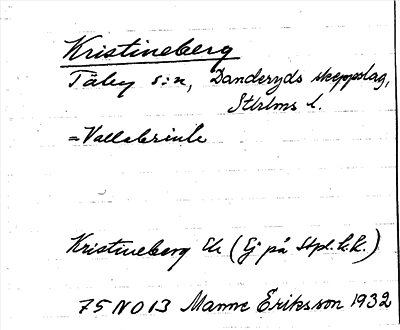 Kristineberg
Täby s:n, Danderyds skeppslag,
Sthlms l.
=Vallabrink
Kristineberg Ek (Ej på Stpl.k.k.)
75 NO 13 Manne Eriksson 1932